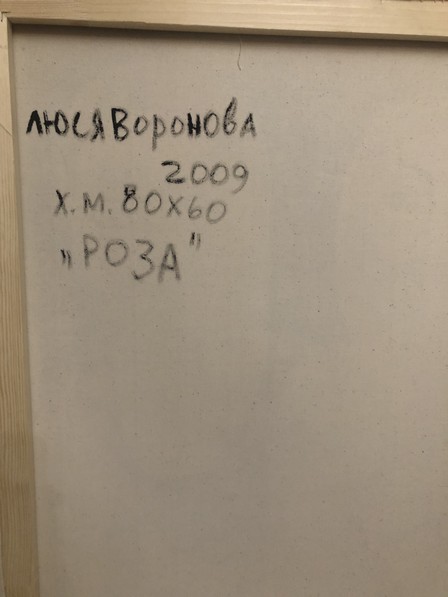 люся Воронова
2009
Х.М. 80х60
„РОЗА"